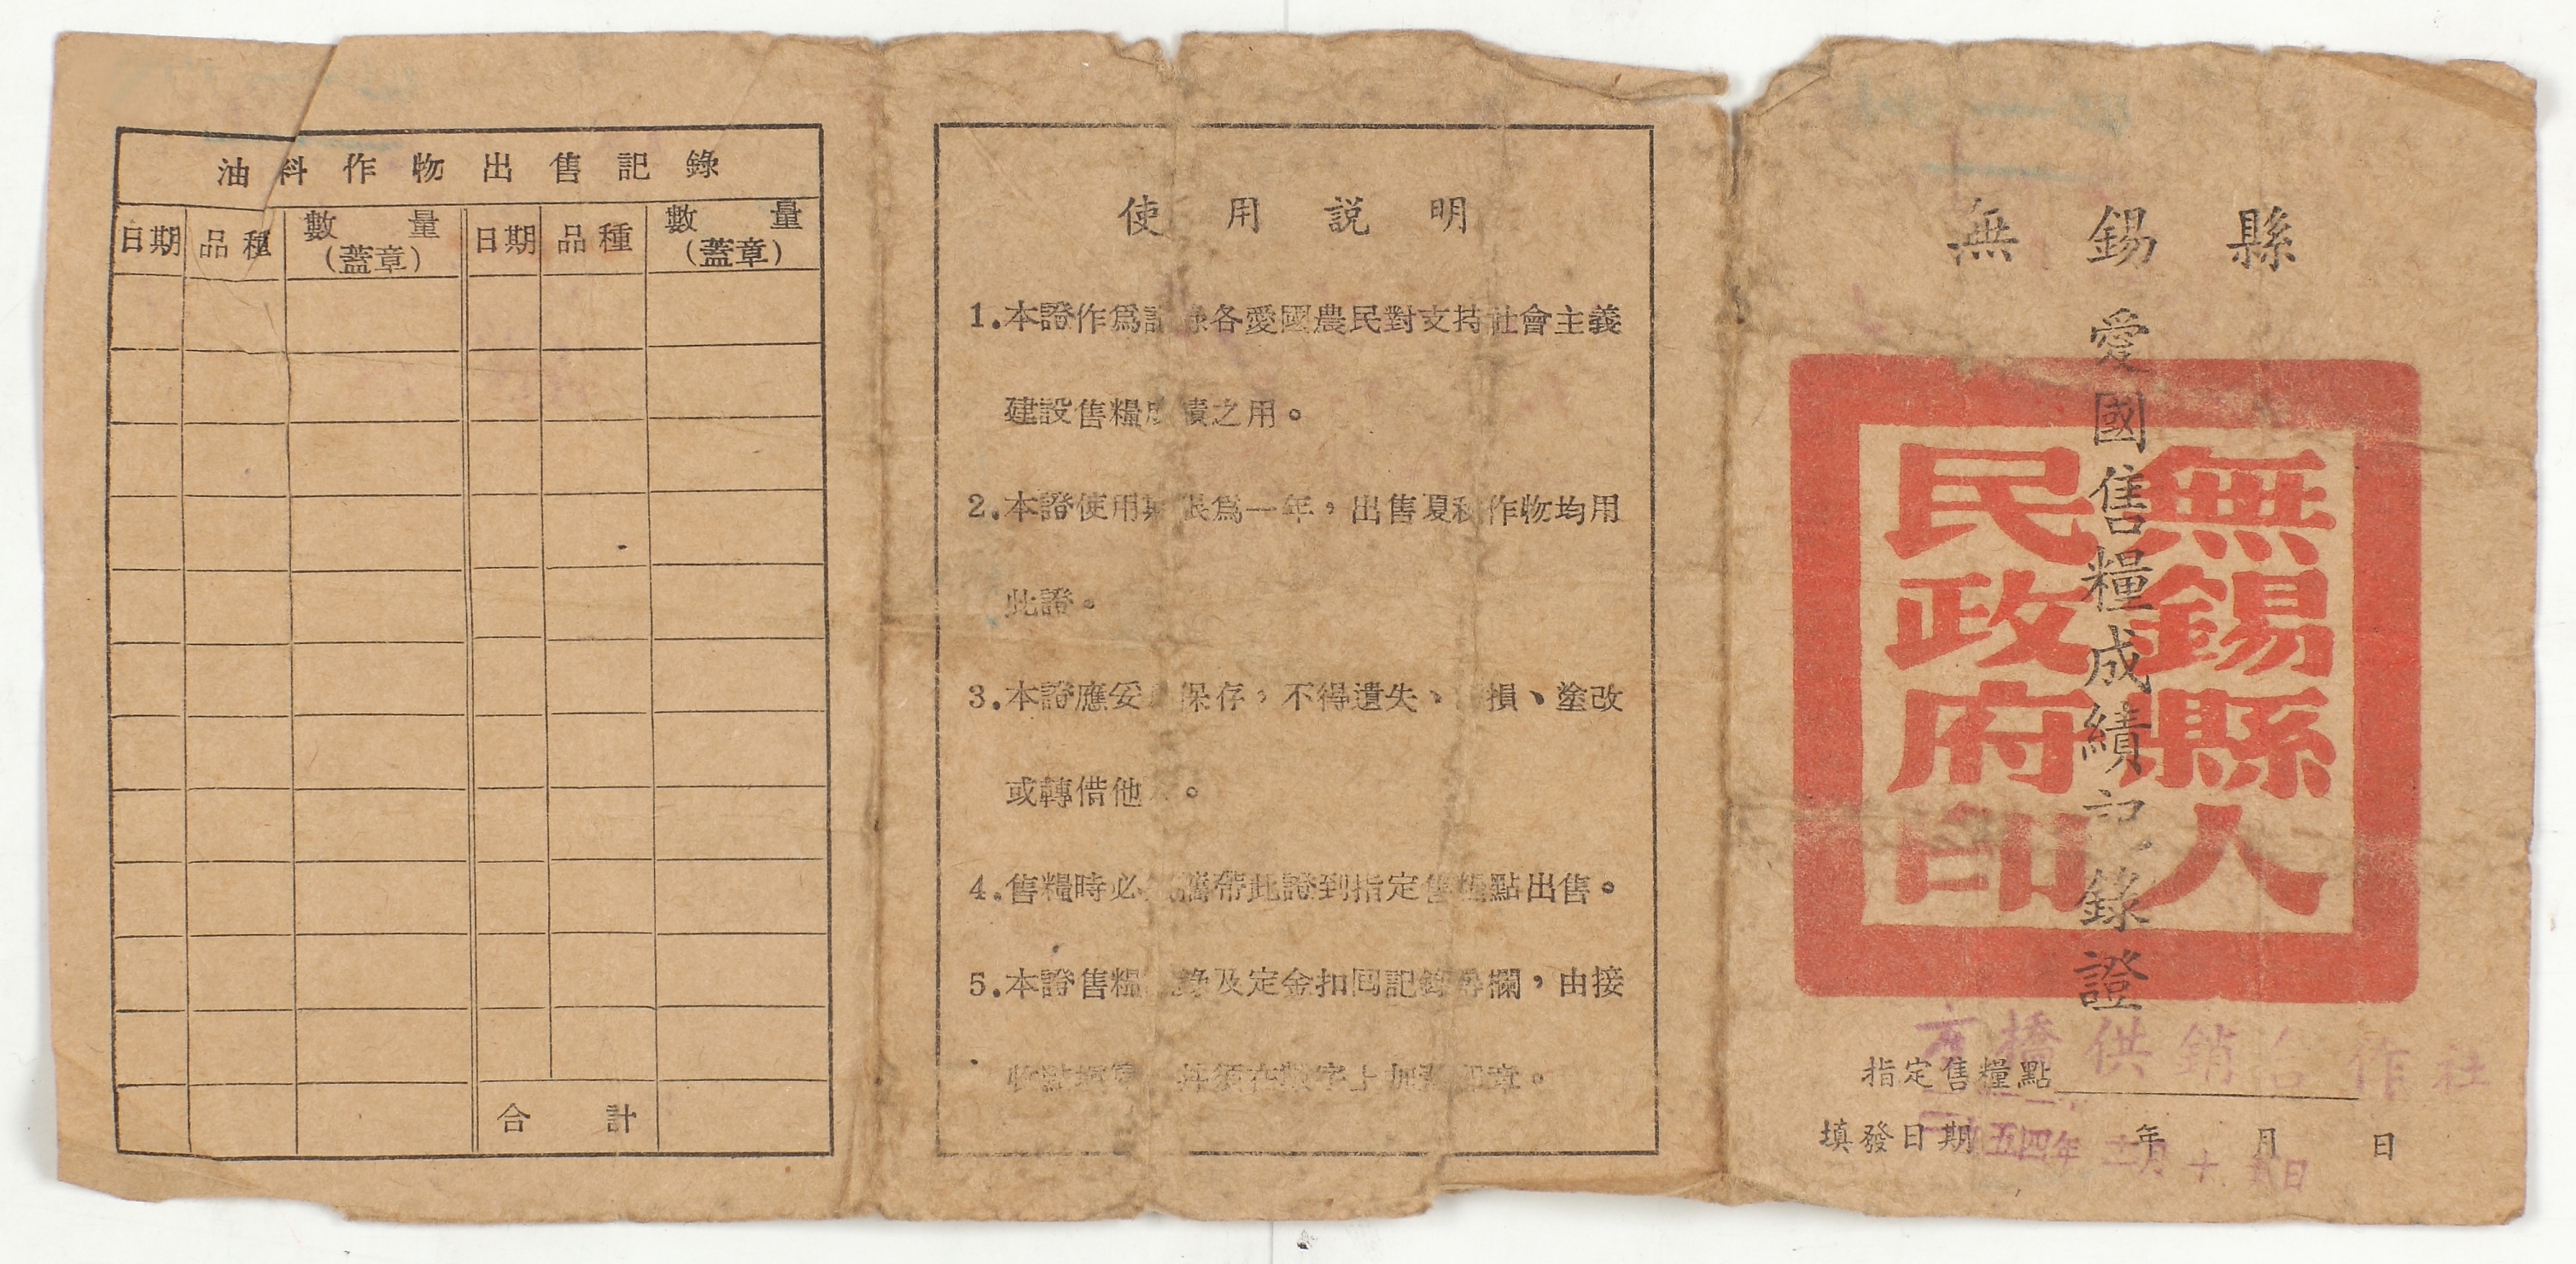 無錫縣
愛國售糧成績記錄證
無錫縣人
民政府印
供銷合作社
指定售糧點
填發日期 年 月 日
五四年 月十 日
使用説明
1.本證作爲記錄各愛國農民對支持社會主義
建設售糧成績之用。
2.本證使用期限爲一年，出售夏秋作物均用
此證。
3.本證應妥 保存，不得遺失、 損、塗改
或轉借他 。
4.售糧時必 攜帶此證到指定售糧點出售。
5.本證售糧 錄及定金扣囘記錄等欄，由接
收點填寫 并須在數字上加蓋印章。
油料作物出售記錄
日期 品種 數量(蓋章) 日期 品種 數量(蓋章)
合計